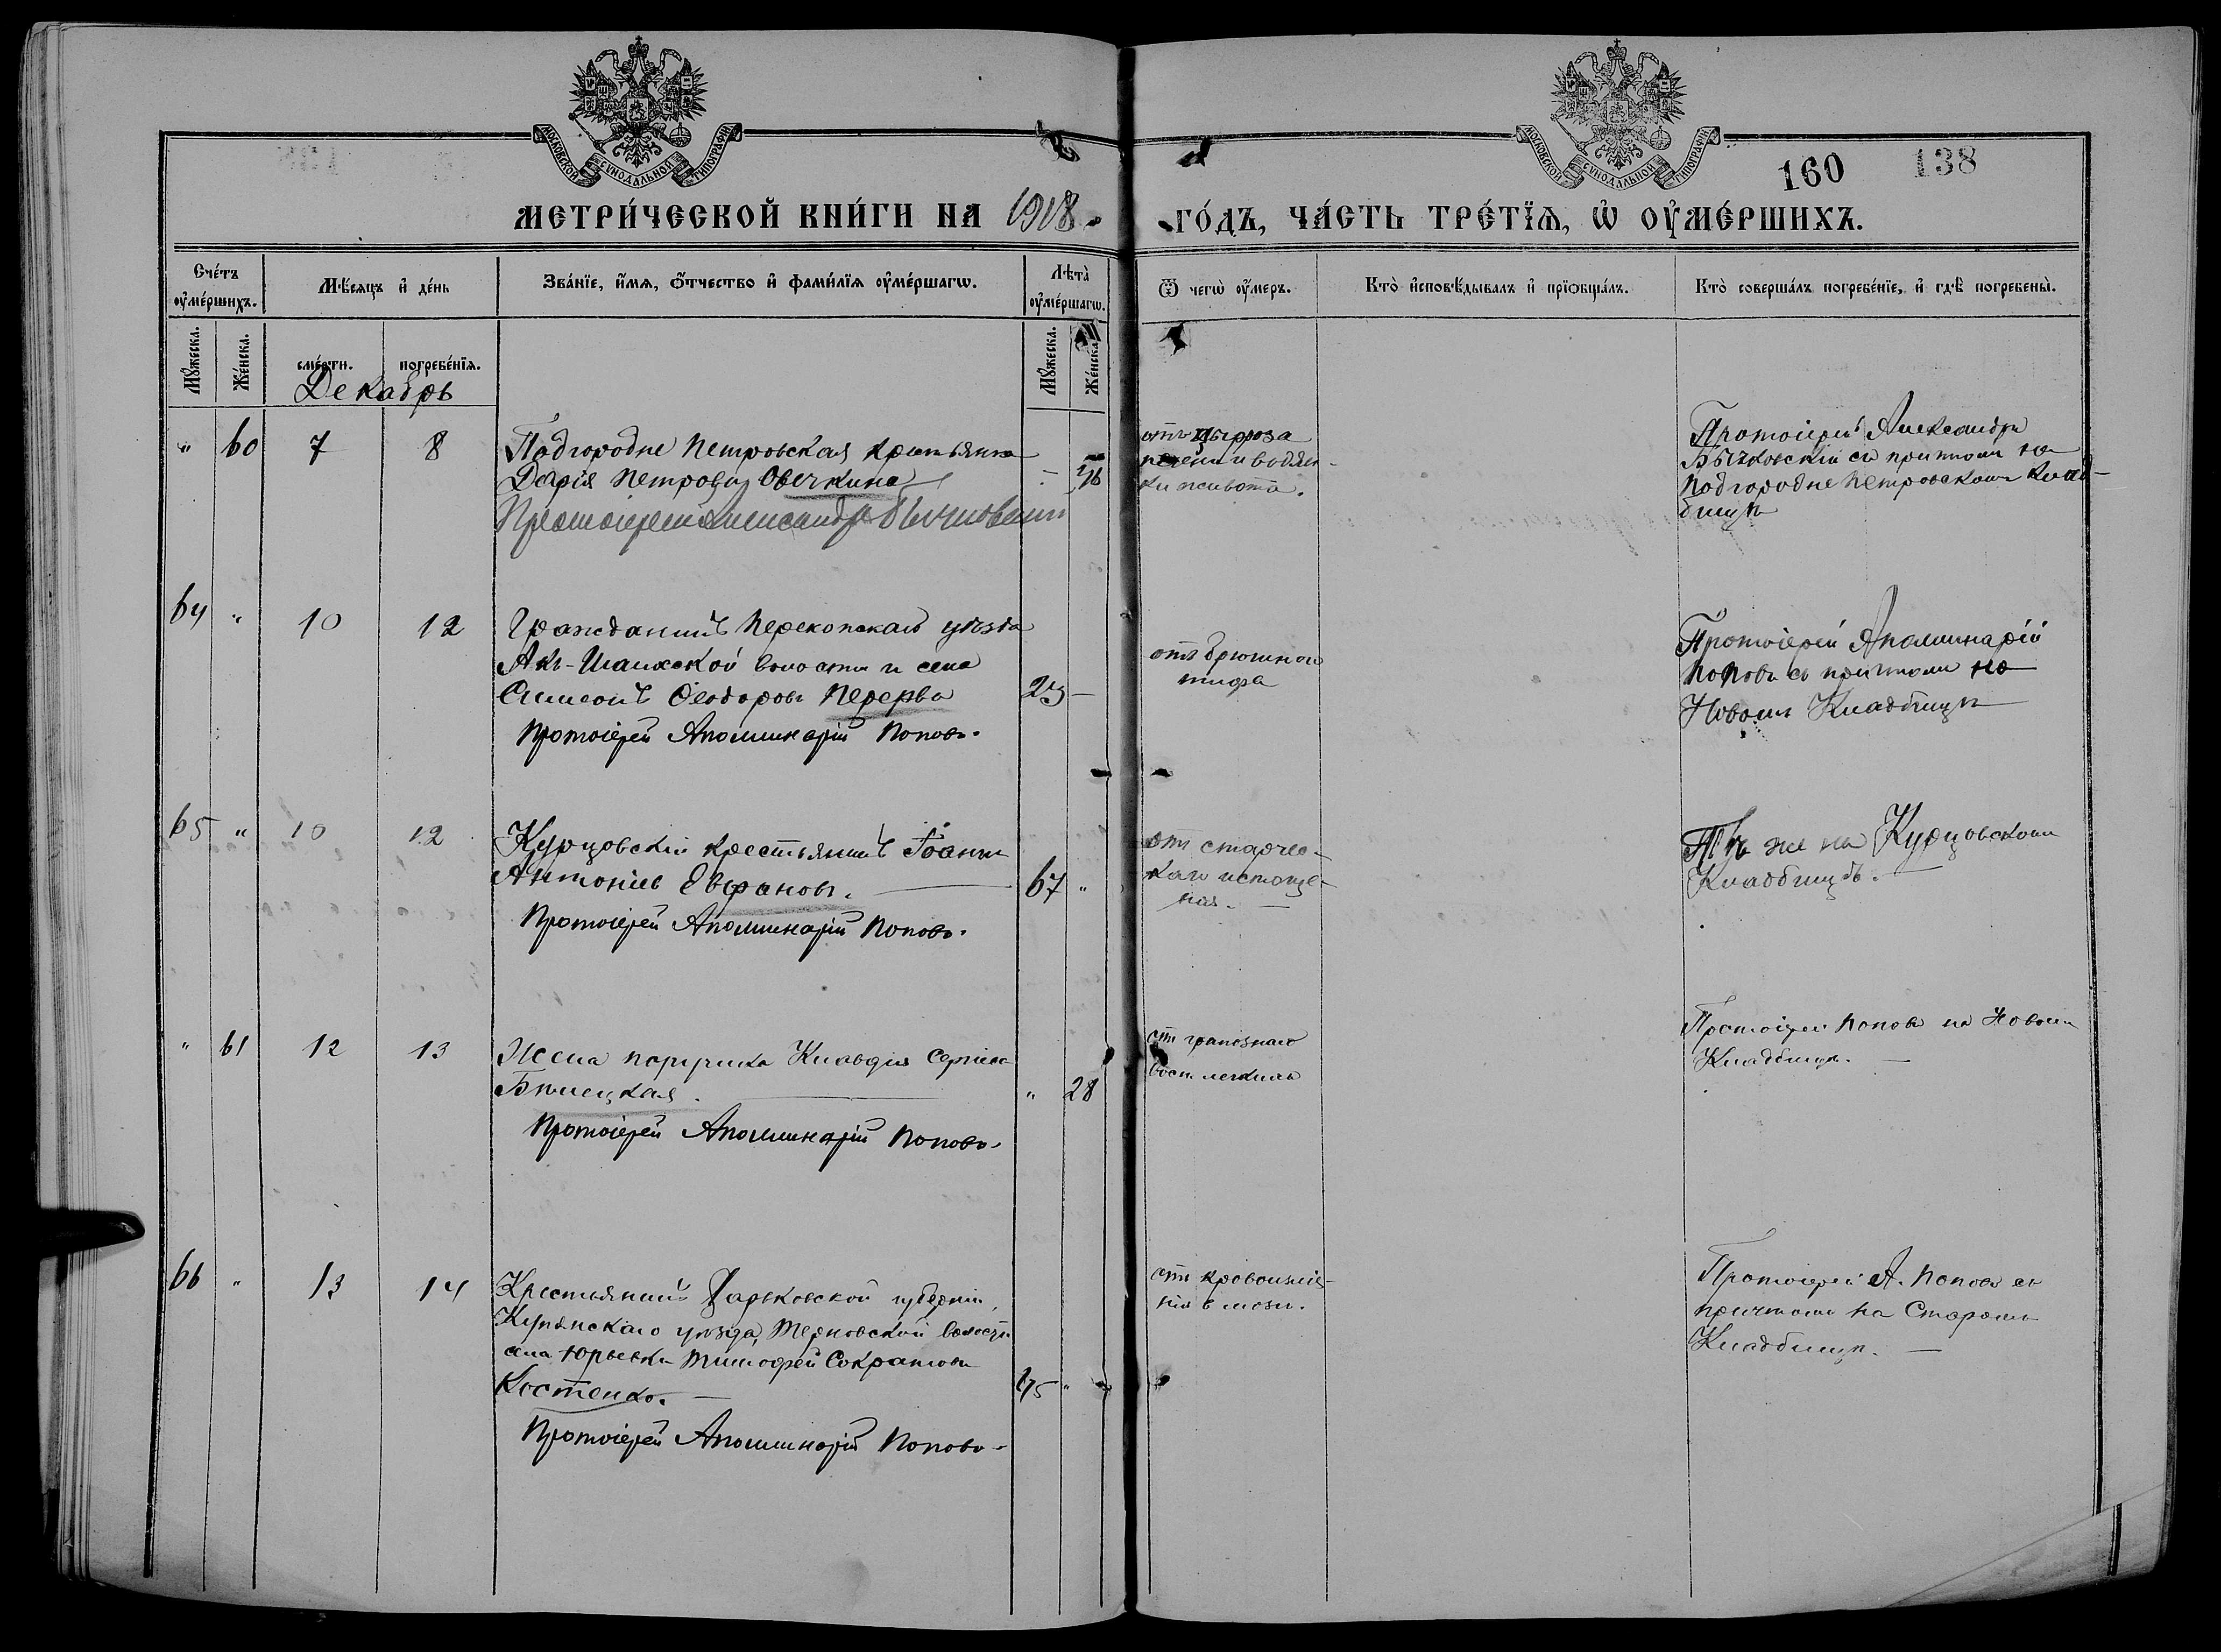 МОСКОВСКОЙ СѴНОДАЛЬНОЙ ТИПОГРАФІИ
МОСКОВСКОЙ СѴНОДАЛЬНОЙ ТИПОГРАФІИ
160 138
МЕТРИ́ЧЕСКОЙ КНИ́ГИ НА 1918
ГО́ДЪ, ЧА́СТЬ ТРЕ́ТЇѦ, Ѡ҆ ОУ҆МЕ́РШИХЪ.
Сче́тъ оу҆ме́ршихъ.
Мѣ́сѧцъ и҆ де́нь
Зва́нїе, и҆́мѧ, ѻ҆́тчество и҆ фами́лїѧ оу҆ме́ршагѡ.
Лѣта̀ оу҆ме́ршагѡ.
Ѿ чегѡ̀ оу҆́меръ.
Кто̀ и҆сповѣ́дывалъ и҆ прїѡбща́лъ.
Кто̀ соверша́лъ погребе́нїе, и҆ гдѣ̀ погребены̀.
Мꙋ́жеска.
Же́нска.
сме́рти.
погребе́нїѧ.
Мꙋ́жеска.
Же́нска.
Декабрь
" 60 7 8
Подгородне Петровская крестьянка
Дарія Петрова Овечкина
Протоіерей Александръ Бычковскій
- 46
отъ цырроза
печени и водян-
ки живота.
Протоіерей Александръ
Бычковскій съ причтомъ на
Подгородне Петровскомъ клад-
бищѣ
64 " 10 12
Гражданинъ Перекопскаго уѣзда
Акъ-Шаихской волости и села
Симеонъ Ѳеодоровъ Перерва
Протоіерей Аполлинарій Поповъ.
23 -
отъ брюшного
тифа
Протоіерей Аполлинарій
Поповъ съ причтомъ на
Новомъ Кладбищѣ
65 " 10 12
Курцовскій крестьянинъ Іоаннъ
Антоніевъ Евфановъ.
Протоіерей Аполлинарій Поповъ.
67 "
отъ старчес-
каго истоще-
нія.
Тѣ же на Курцовскомъ
Кладбищѣ.
" 61 12 13
Жена поручика Клавдія Сергіева
Протоіерей Аполлинарій Поповъ.
" 28
отъ
восп. легкихъ
Протоіерей Поповъ на Новомъ
Кладбищѣ.
66 " 13 14
Крестьянинъ Харьковской губерніи,
Купянскаго уѣзда, Терновской волости
села Юрьевки Тимофей Сократовъ
Костенко.
Протоіерей Аполлинарій Поповъ.
45 "
отъ кровоизлія-
нія в мозгъ.
Протоіерей А. Поповъ съ
причтомъ на Старомъ
Кладбищѣ.